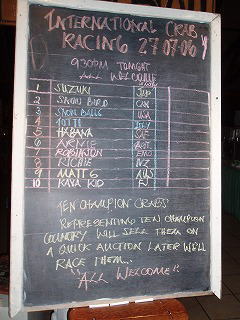 INTERNATIONAL CRAB
RACING 27-07-06
930PM TONIGHT
ALL WELCOME
1 SUZUKI
2 SNOW BIRD CAN
3 SNOW BALLS USA
4
5 HABANA
6 ARNIE
7 ROBINSON ENG
8 RICHIE NZ
9 MATTG AUS
10 KAVA KID FJ
TEN CHAMPION CRABS
REPRESENTING TEN CHAMPION
COUNTRY WILL SELL THEM ON
A QUICK AUCTION LATER WE'LL
RACE THEM...
"ALL WELCOME"